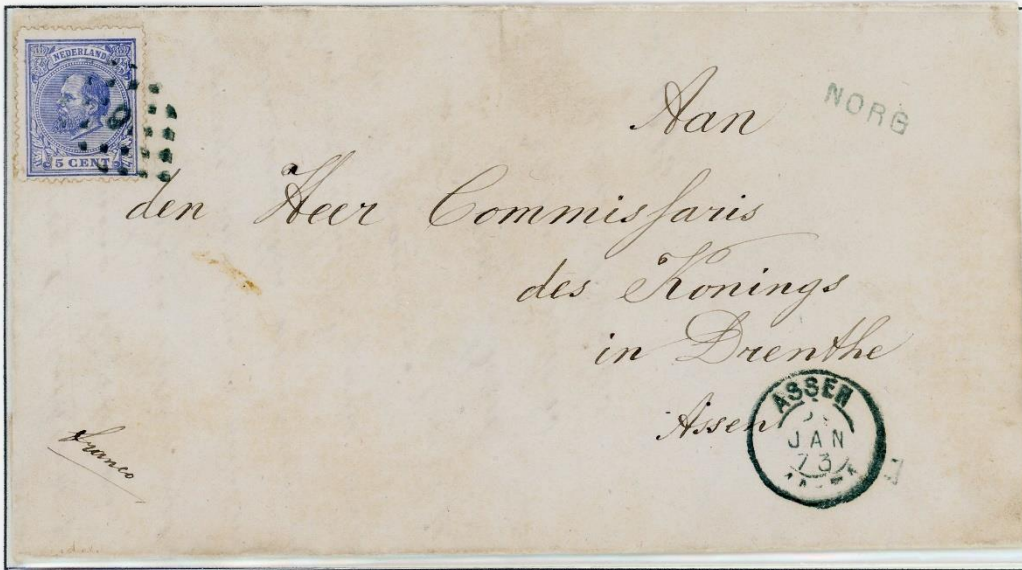 NEDERLAND
9
5 CENT
NORG
Aan
den Heer Commissaris
des Konings
in Drenthe
Assen
ASSEN
JAN
73
Franco